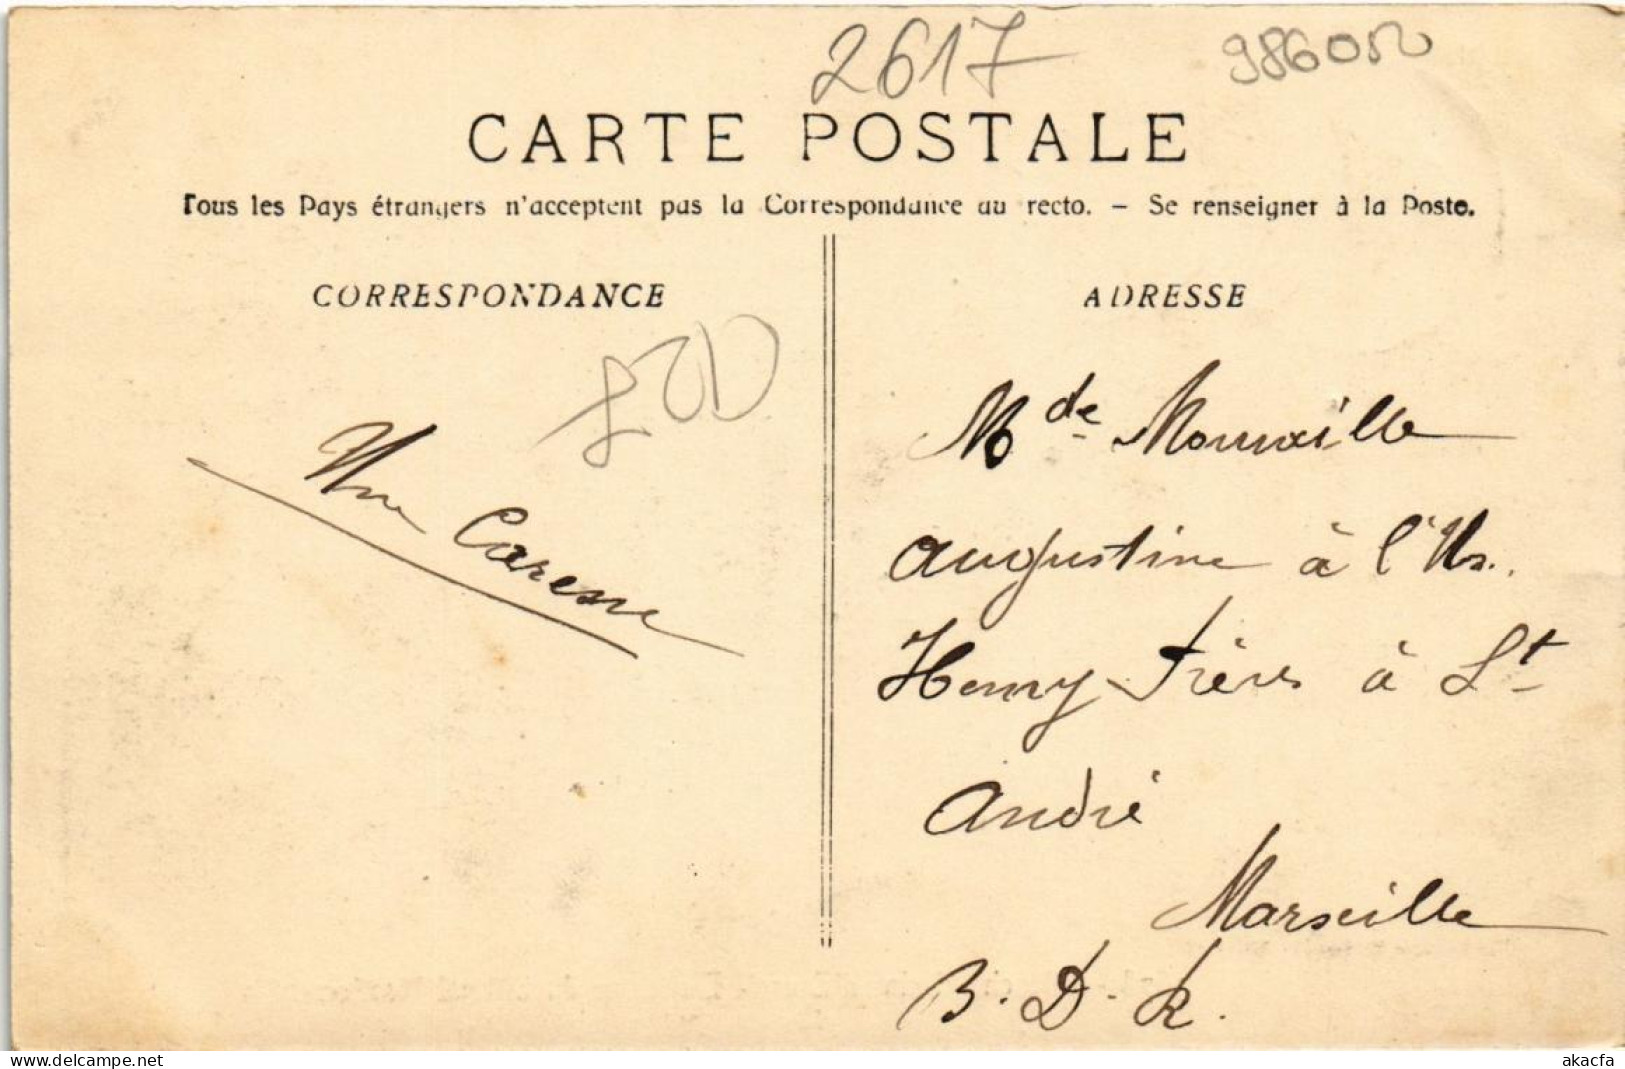 2617
98605
CARTE POSTALE
Tous les Pays étrangers n'acceptent pas la Correspondance au recto. – Se renseigner à la Poste.
CORRESPONDANCE
Une Caresse
ADRESSE
Mde
augustine à l'Us.
Henry frères à St
André
Marseille
B. D. R.
akacfa